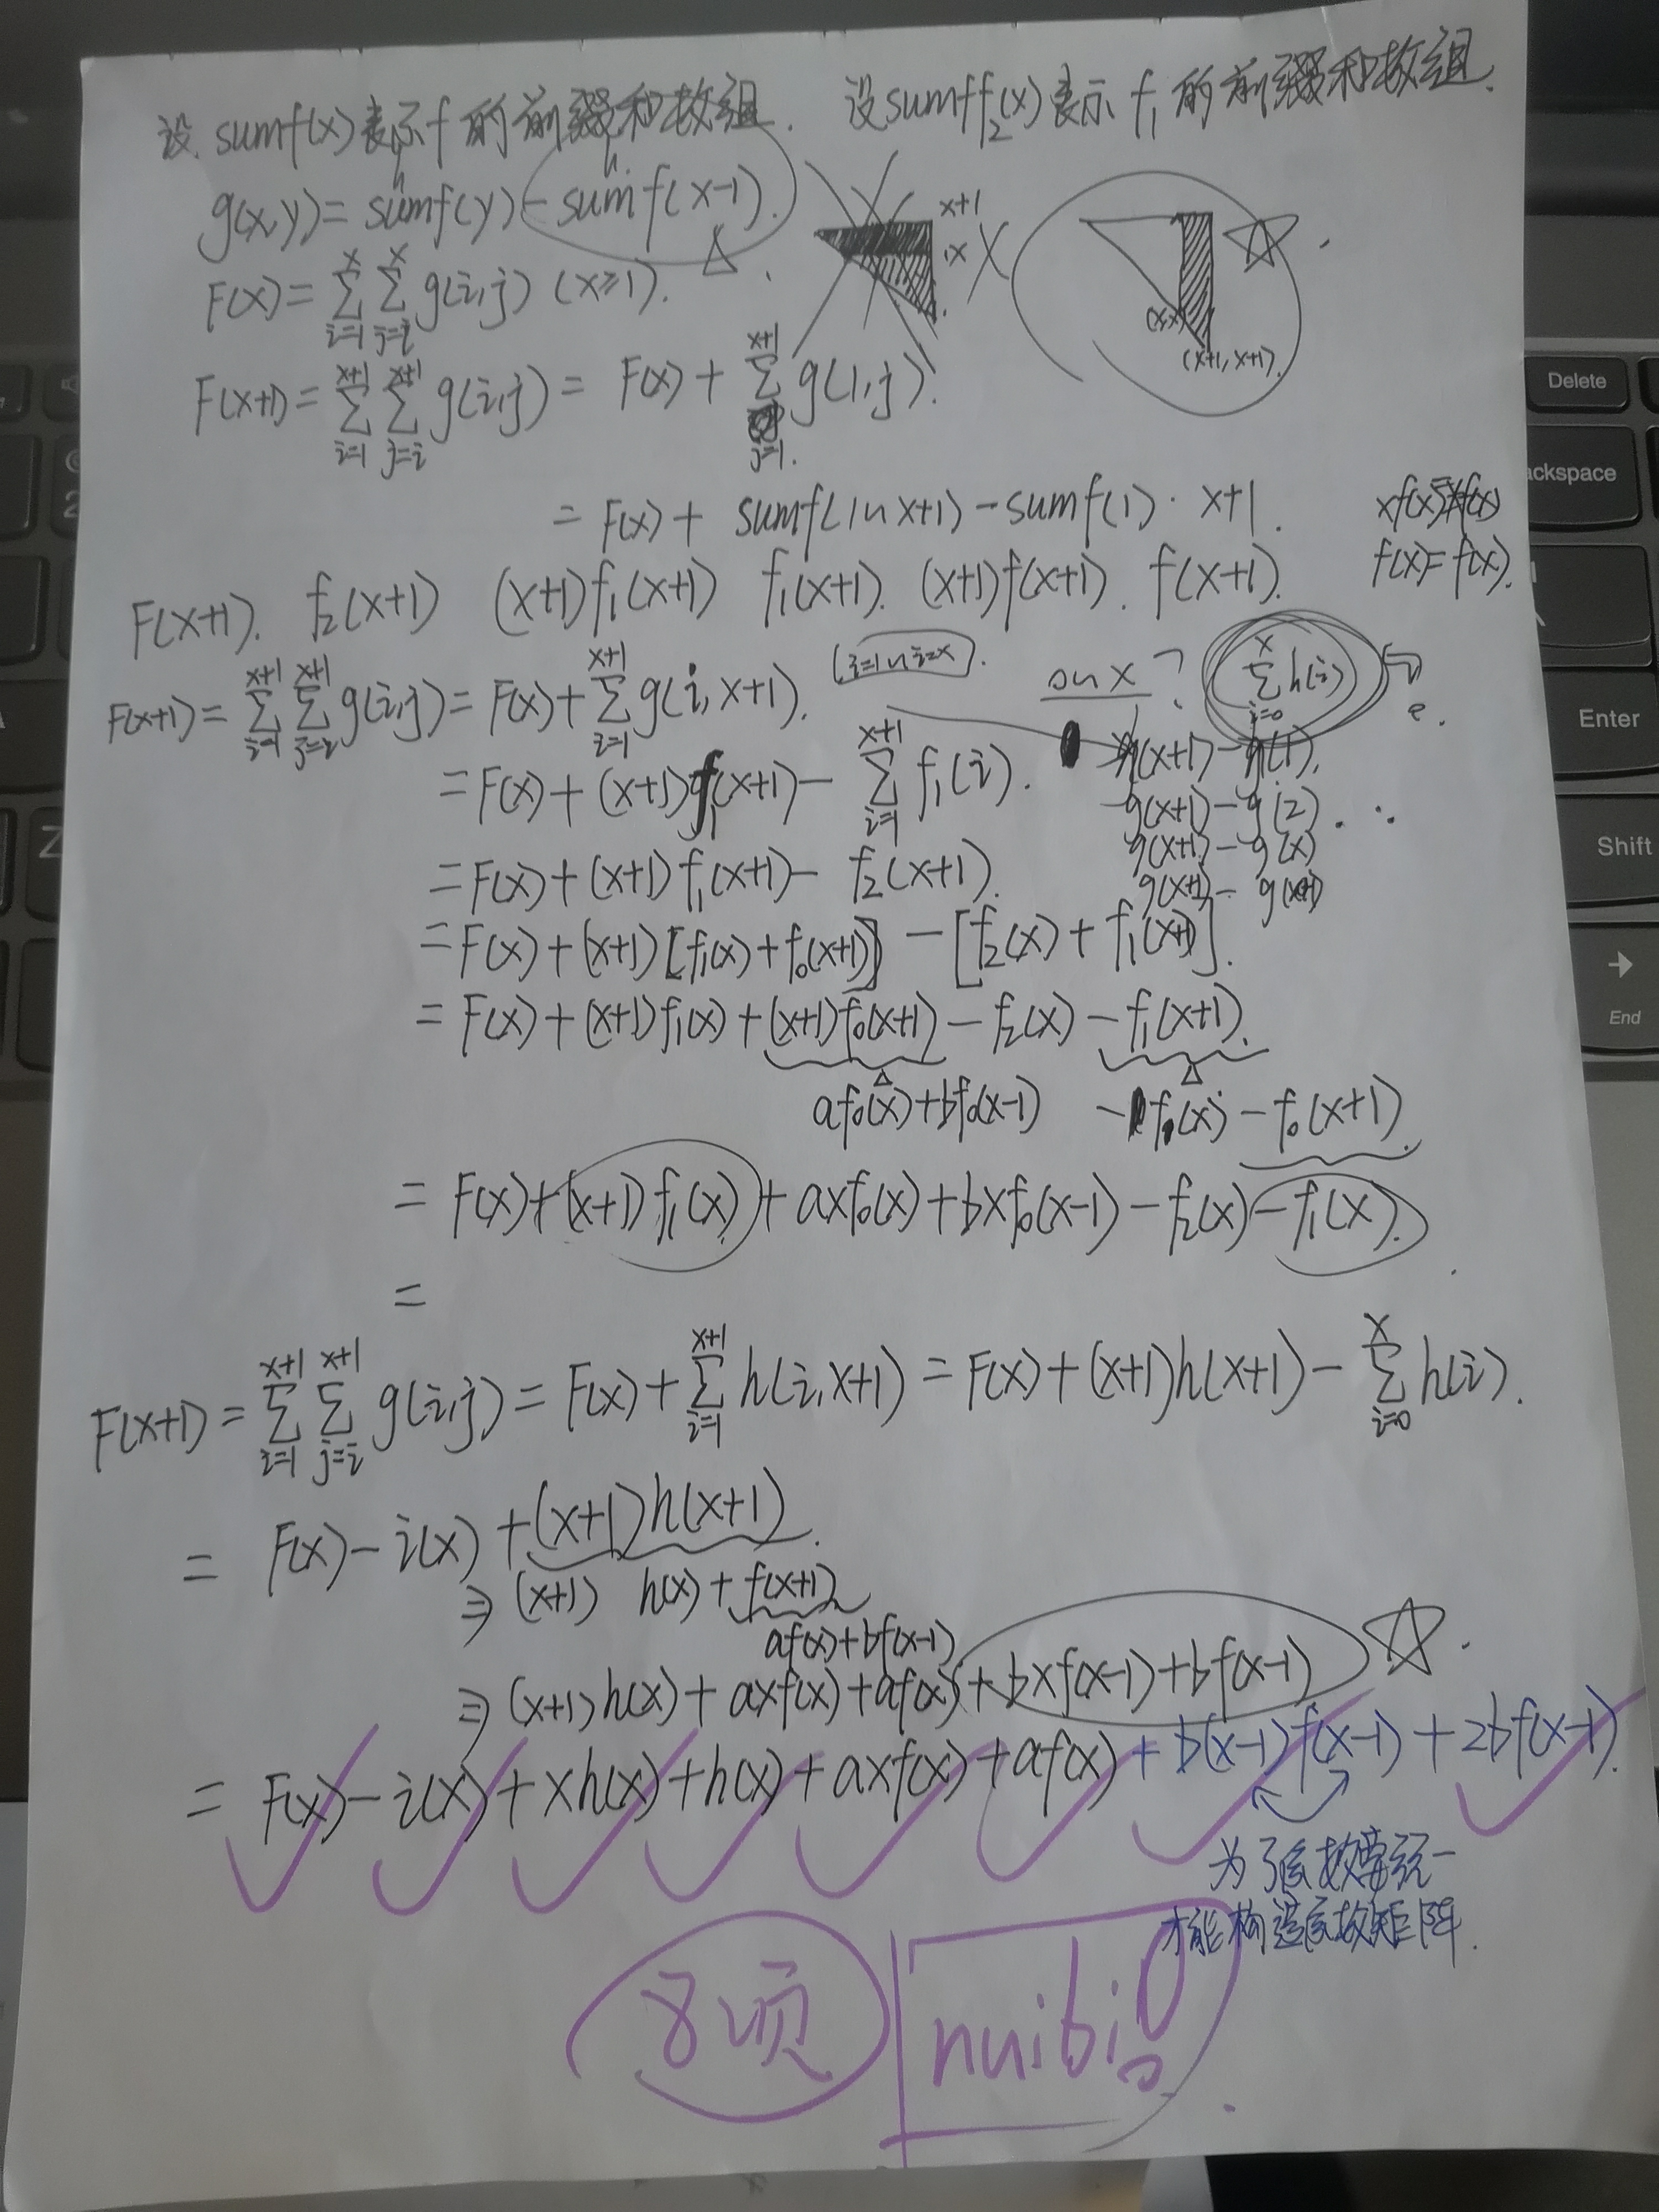 设 sumf(x)表示f的前缀和数组. 设sumff₂(x)表示f₁的前缀和数组.
g(x,y)= sumf(y)-sumf(x-1).
x+1
x
F(x)= Σ_{i=1}^{x} Σ_{j=i}^{x} g(i,j) (x≥1).
(x,x)
(x+1,x+1).
F(x+1)= Σ_{i=1}^{x+1} Σ_{j=i}^{x+1} g(i,j) = F(x)+ Σ_{j=1}^{x+1} g(1,j).
= F(x)+ sumf(1~x+1)-sumf(1)·x+1.
f(x)=f(x).
F(x+1). f₂(x+1) (x+1)f₁(x+1) f₁(x+1). (x+1)f(x+1). f(x+1).
F(x+1)= Σ_{i=1}^{x+1} Σ_{j=i}^{x+1} g(i,j)= F(x)+ Σ_{i=1}^{x+1} g(i,x+1). (i=1~i=x).
Σ_{i=0}^{x} h(i)
= F(x)+(x+1)f₁(x+1)- Σ_{i=1}^{x+1} f₁(i).
g(x+1)-g(1).
g(x+1)-g(2).
g(x+1)-g(x)
g(x+1)-g(x+1)
= F(x)+(x+1)f₁(x+1)- f₂(x+1).
= F(x)+(x+1)[f₁(x)+f₀(x+1)] -[f₂(x)+f₁(x+1)].
= F(x)+(x+1)f₁(x)+(x+1)f₀(x+1)-f₂(x)-f₁(x+1).
af₀(x)+bf₀(x-1) -f₁(x)-f₀(x+1).
= F(x)+(x+1)f₁(x)+axf₀(x)+bxf₀(x-1)-f₂(x)-f₁(x).
=
F(x+1)= Σ_{i=1}^{x+1} Σ_{j=i}^{x+1} g(i,j) = F(x)+ Σ_{i=1}^{x+1} h(i,x+1) = F(x)+(x+1)h(x+1)- Σ_{i=0}^{x} h(i).
= F(x)-i(x)+(x+1)h(x+1).
⇒(x+1) h(x)+f(x+1)
af(x)+bf(x-1)
⇒(x+1)h(x)+axf(x)+af(x)+bxf(x-1)+bf(x-1)
= F(x)-i(x)+xh(x)+h(x)+axf(x)+af(x)+b(x-1)f(x-1)+2bf(x-1).
为了函数要统一
才能构造系数矩阵.
8项
nuibi